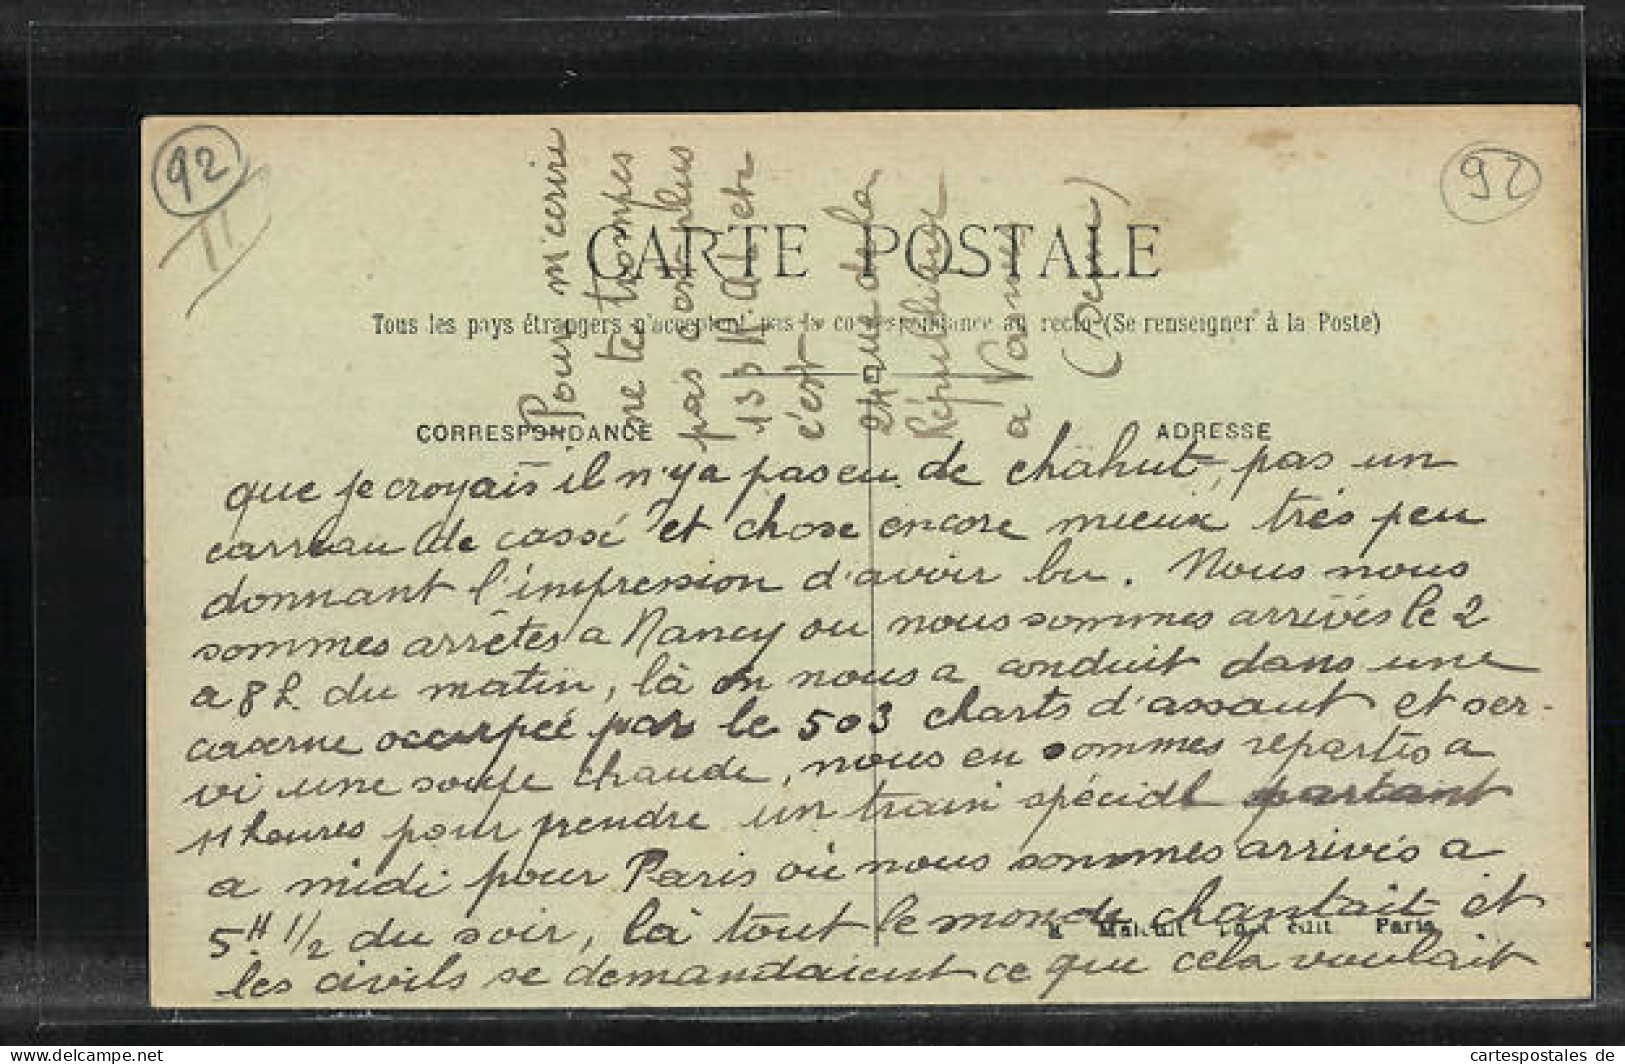 92
II
92
Pour m'ecrire
ne te trompes
pas c'est plus
133
c'est
24 rue de la
République
a Vanves
(Seine)
CARTE POSTALE
Tous les pays étrangers n'acceptent pas la correspondance au recto (Se renseigner à la Poste)
CORRESPONDANCE
ADRESSE
que je croyais il n'y a pas eu de chahut, pas un
carreau de cassé et chose encore mieux très peu
donnant l'impression d'avoir bu. Nous nous
sommes arrêtés a Nancy ou nous sommes arrivés le 2
a 8 h du matin, là on nous a conduit dans une
caserne occupée par le 503 charts d'assaut et ser-
vi une soupe chaude, nous en sommes repartis a
11 heures pour prendre un train spécial partant
a midi pour Paris où nous sommes arrivés a
5H 1/2 du soir, là tout le monde chantait et
les civils se demandaient ce que cela voulait
édit Paris
cartespostales.de